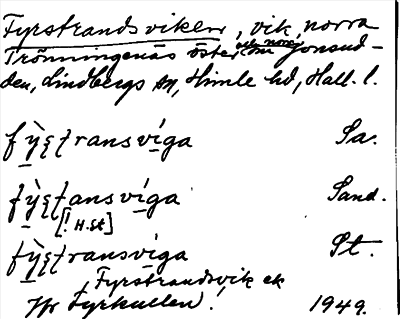 Fyrstrandsviken, vik, norra
Trönningenäs öster och norr om Jonsud-
den, Lindbergs sn, Himle hd, Hall. l.
fỳʂtransvíga Sa.
fỳʂtansvíga Sand.
[! H.St]
fỳʂtransviga St.
Fyrstrandsvik ek
Jfr Fyrkullen! 1949.